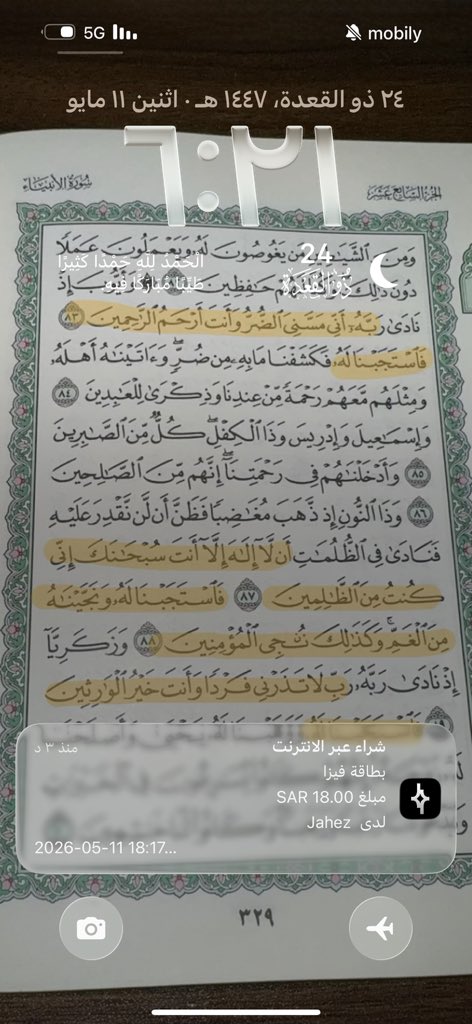 5G
mobily
٢٤ ذو القعدة، ١٤٤٧ هـ • اثنين ١١ مايو
٦:٢١
سورة الأنبياء
الجزء السابع عشر
24
ذو القعدة
الْحَمْدُ لِلَّهِ حَمْدًا كَثِيرًا
طَيِّبًا مُبَارَكًا فِيهِ
وَمِنَ الشَّيَـٰطِينِ مَن يَغُوصُونَ لَهُۥ وَيَعْمَلُونَ عَمَلًا
دُونَ ذَٰلِكَ ۖ لَهُمْ حَـٰفِظِينَ إِذْ
نَادَىٰ رَبَّهُۥٓ أَنِّى مَسَّنِىَ ٱلضُّرُّ وَأَنتَ أَرْحَمُ ٱلرَّٰحِمِينَ ٨٣
فَٱسْتَجَبْنَا لَهُۥ فَكَشَفْنَا مَا بِهِۦ مِن ضُرٍّ ۖ وَءَاتَيْنَـٰهُ أَهْلَهُۥ
وَمِثْلَهُم مَّعَهُمْ رَحْمَةً مِّنْ عِندِنَا وَذِكْرَىٰ لِلْعَـٰبِدِينَ ٨٤
وَإِسْمَـٰعِيلَ وَإِدْرِيسَ وَذَا ٱلْكِفْلِ ۖ كُلٌّ مِّنَ ٱلصَّـٰبِرِينَ
٨٥ وَأَدْخَلْنَـٰهُمْ فِى رَحْمَتِنَآ ۖ إِنَّهُم مِّنَ ٱلصَّـٰلِحِينَ
٨٦ وَذَا ٱلنُّونِ إِذ ذَّهَبَ مُغَـٰضِبًا فَظَنَّ أَن لَّن نَّقْدِرَ عَلَيْهِ
فَنَادَىٰ فِى ٱلظُّلُمَـٰتِ أَن لَّآ إِلَـٰهَ إِلَّآ أَنتَ سُبْحَـٰنَكَ إِنِّى
كُنتُ مِنَ ٱلظَّـٰلِمِينَ ٨٧ فَٱسْتَجَبْنَا لَهُۥ وَنَجَّيْنَـٰهُ
مِنَ ٱلْغَمِّ ۚ وَكَذَٰلِكَ نُـۨجِى ٱلْمُؤْمِنِينَ ٨٨ وَزَكَرِيَّآ
إِذْ نَادَىٰ رَبَّهُۥ رَبِّ لَا تَذَرْنِى فَرْدًا وَأَنتَ خَيْرُ ٱلْوَٰرِثِينَ
شراء عبر الانترنت
منذ ٣ د
بطاقة فيزا
مبلغ SAR 18.00
لدى Jahez
2026-05-11 18:17...
٣٢٩